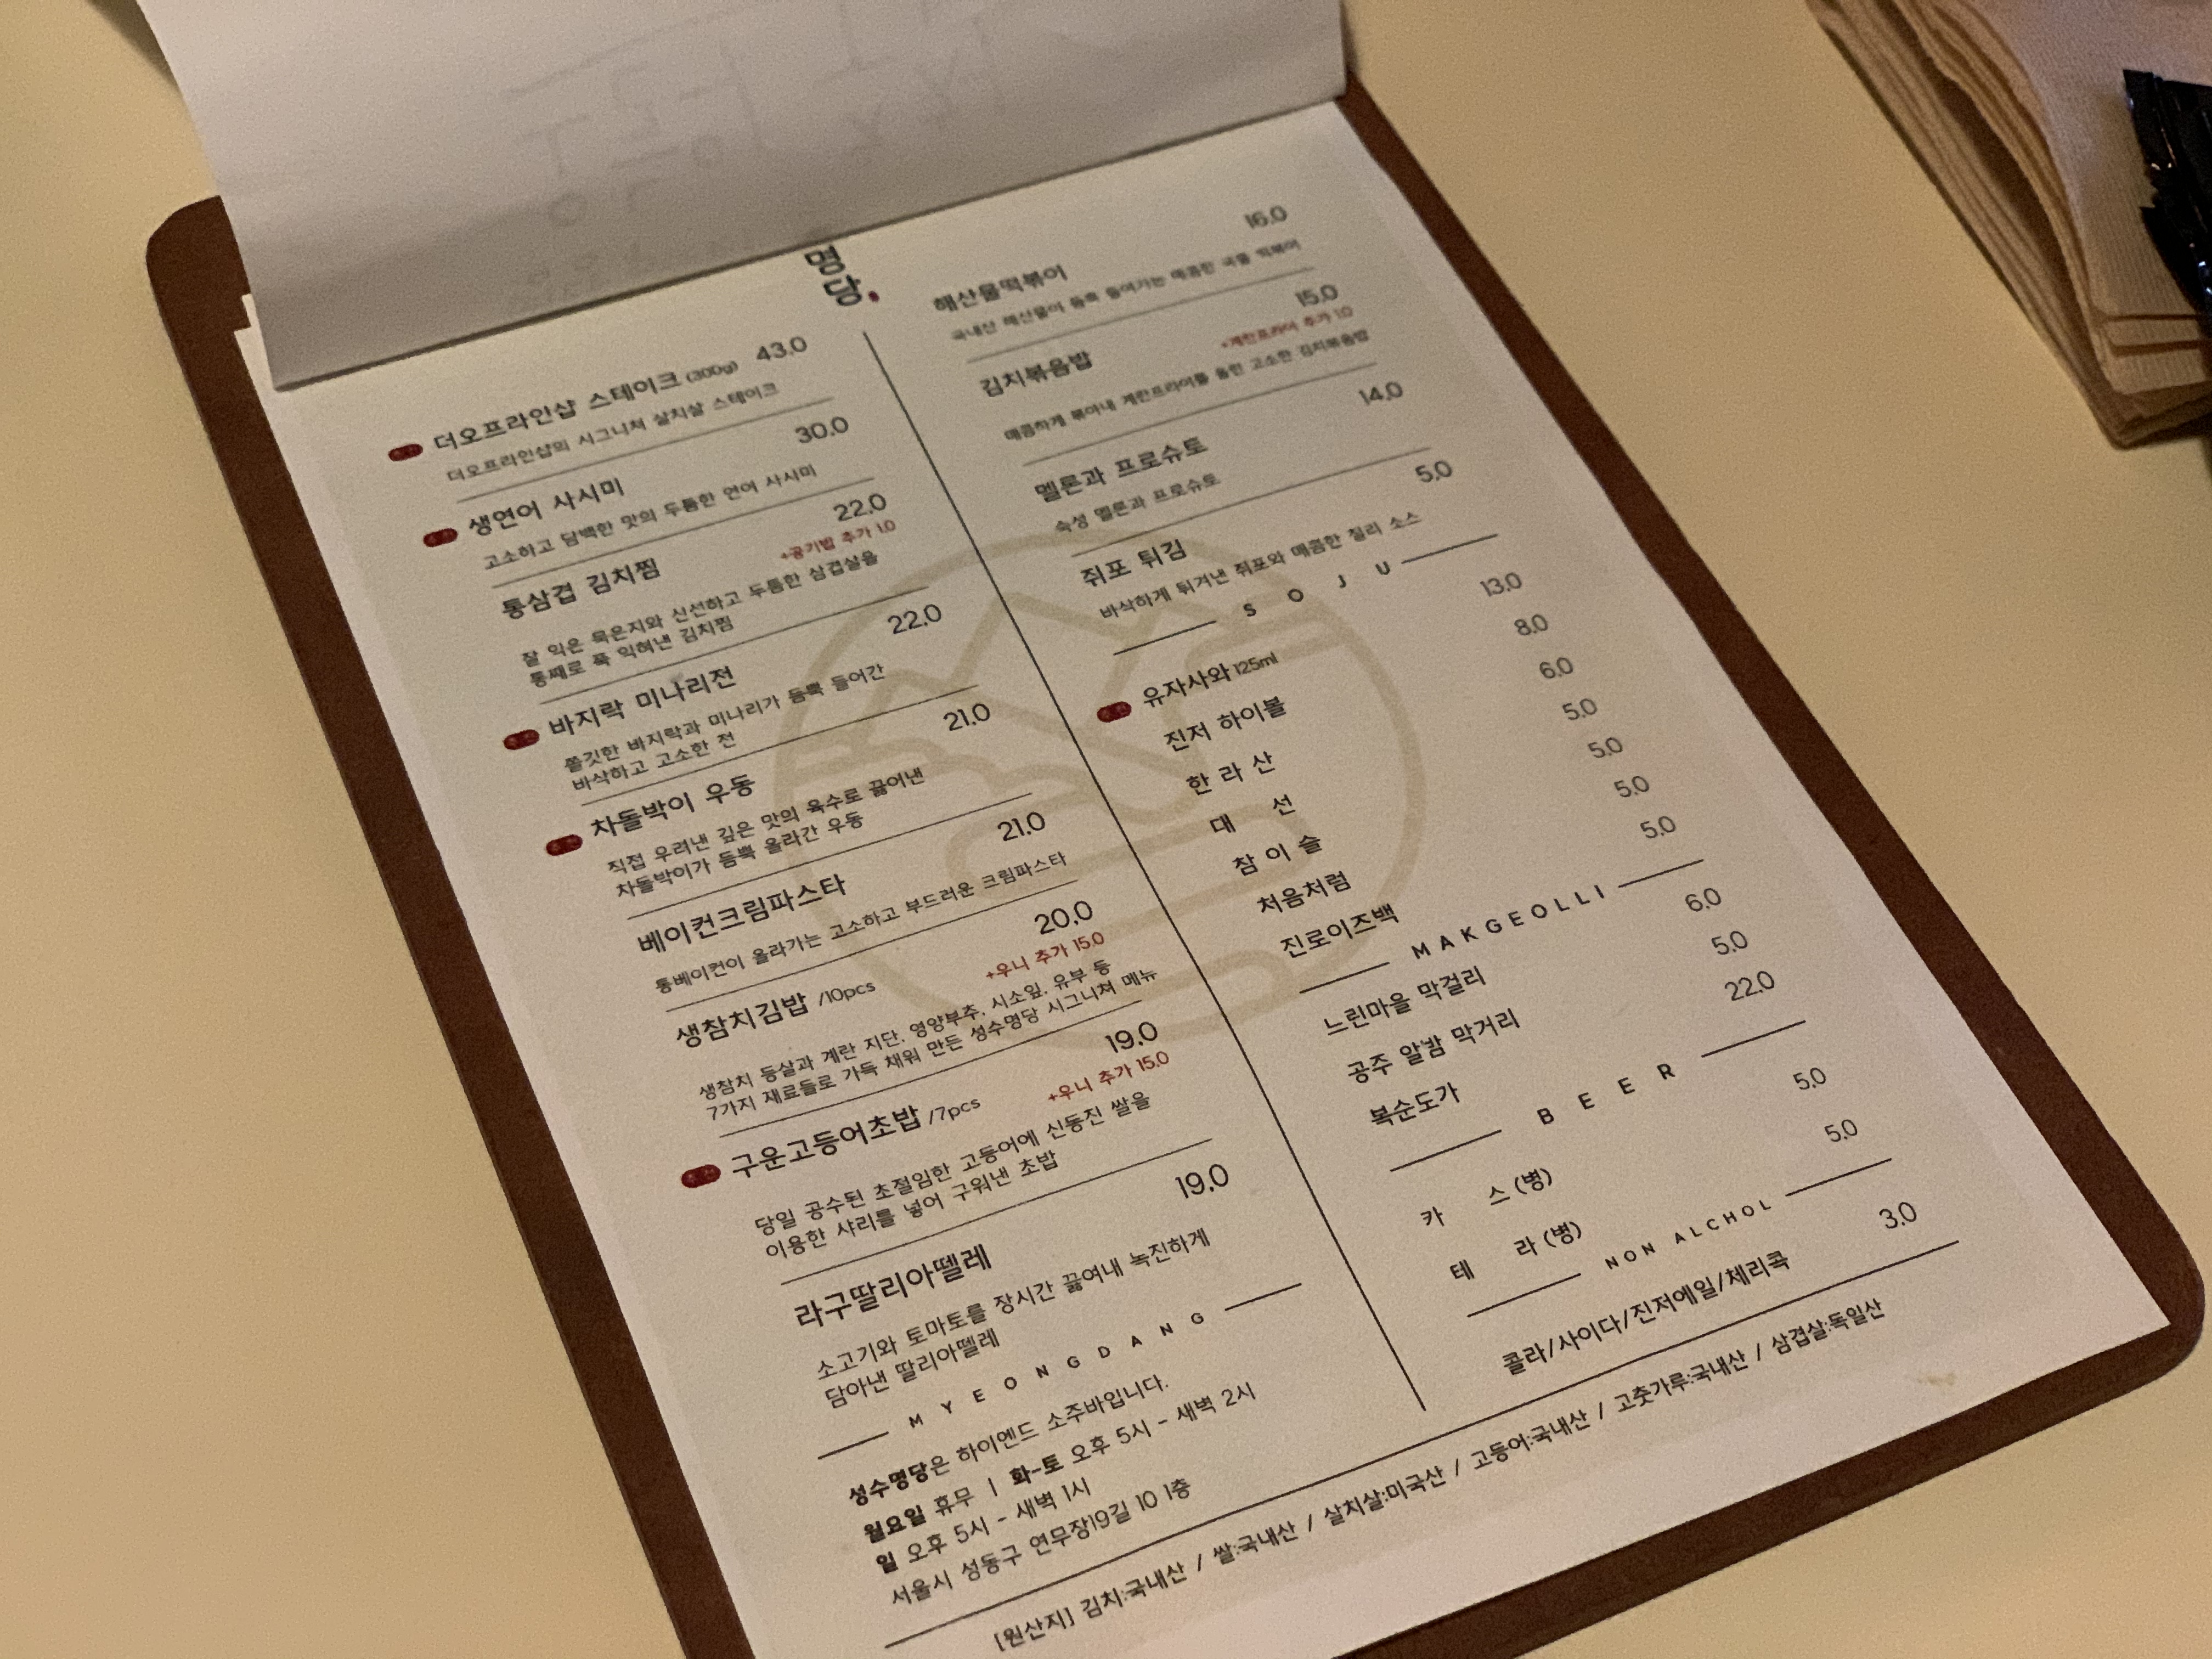 명
당.
더오프라인샵 스테이크 (300g) 43.0
더오프라인샵의 시그니쳐 살치살 스테이크
생연어 사시미 30.0
고소하고 담백한 맛의 두툼한 연어 사시미
통삼겹 김치찜 22.0
+공기밥 추가 1.0
잘 익은 묵은지와 신선하고 두툼한 삼겹살을
통째로 푹 익혀낸 김치찜
바지락 미나리전 22.0
쫄깃한 바지락과 미나리가 듬뿍 들어간
바삭하고 고소한 전
차돌박이 우동 21.0
직접 우려낸 깊은 맛의 육수로 끓어낸
차돌박이가 듬뿍 올라간 우동
베이컨크림파스타 21.0
통베이컨이 올라가는 고소하고 부드러운 크림파스타
생참치김밥 /10pcs 20.0
+우니 추가 15.0
생참치 등살과 계란 지단, 영양부추, 시소잎, 유부 등
7가지 재료들로 가득 채워 만든 성수명당 시그니쳐 메뉴
구운고등어초밥 /7pcs 19.0
+우니 추가 15.0
당일 공수된 초절임한 고등어에 신동진 쌀을
이용한 샤리를 넣어 구워낸 초밥
라구딸리아뗄레 19.0
소고기와 토마토를 장시간 끓여내 녹진하게
담아낸 딸리아뗄레
MYEONGDANG
성수명당은 하이엔드 소주바입니다.
월요일 휴무 | 화-토 오후 5시 - 새벽 2시
일 오후 5시 - 새벽 1시
서울시 성동구 연무장19길 10 1층
해산물떡볶이 16.0
국내산 해산물이 듬뿍 들어가는 매콤한 국물 떡볶이
김치볶음밥 15.0
+계란프라이 추가 1.0
매콤하게 볶아내 계란프라이를 올린 고소한 김치볶음밥
멜론과 프로슈토 14.0
숙성 멜론과 프로슈토
쥐포 튀김 5.0
바삭하게 튀겨낸 쥐포와 매콤한 칠리 소스
SOJU
유자사와 125ml 13.0
진저 하이볼 8.0
한라산 6.0
대 선 5.0
참이슬 5.0
처음처럼 5.0
진로이즈백 5.0
MAKGEOLLI
느린마을 막걸리 6.0
공주 알밤 막거리 5.0
복순도가 22.0
BEER
카 스 (병) 5.0
테 라 (병) 5.0
NON ALCHOL
콜라/사이다/진저에일/체리콕 3.0
[원산지] 김치:국내산 / 쌀:국내산 / 살치살:미국산 / 고등어:국내산 / 고춧가루:국내산 / 삼겹살:독일산